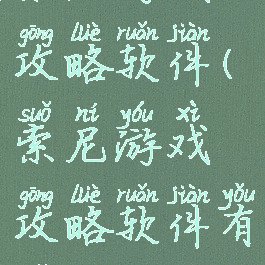 gōng lüè ruǎn jiàn
攻略软件(
suǒ ní yóu xì
索尼游戏
gōng lüè ruǎn jiàn yǒu
攻略软件有